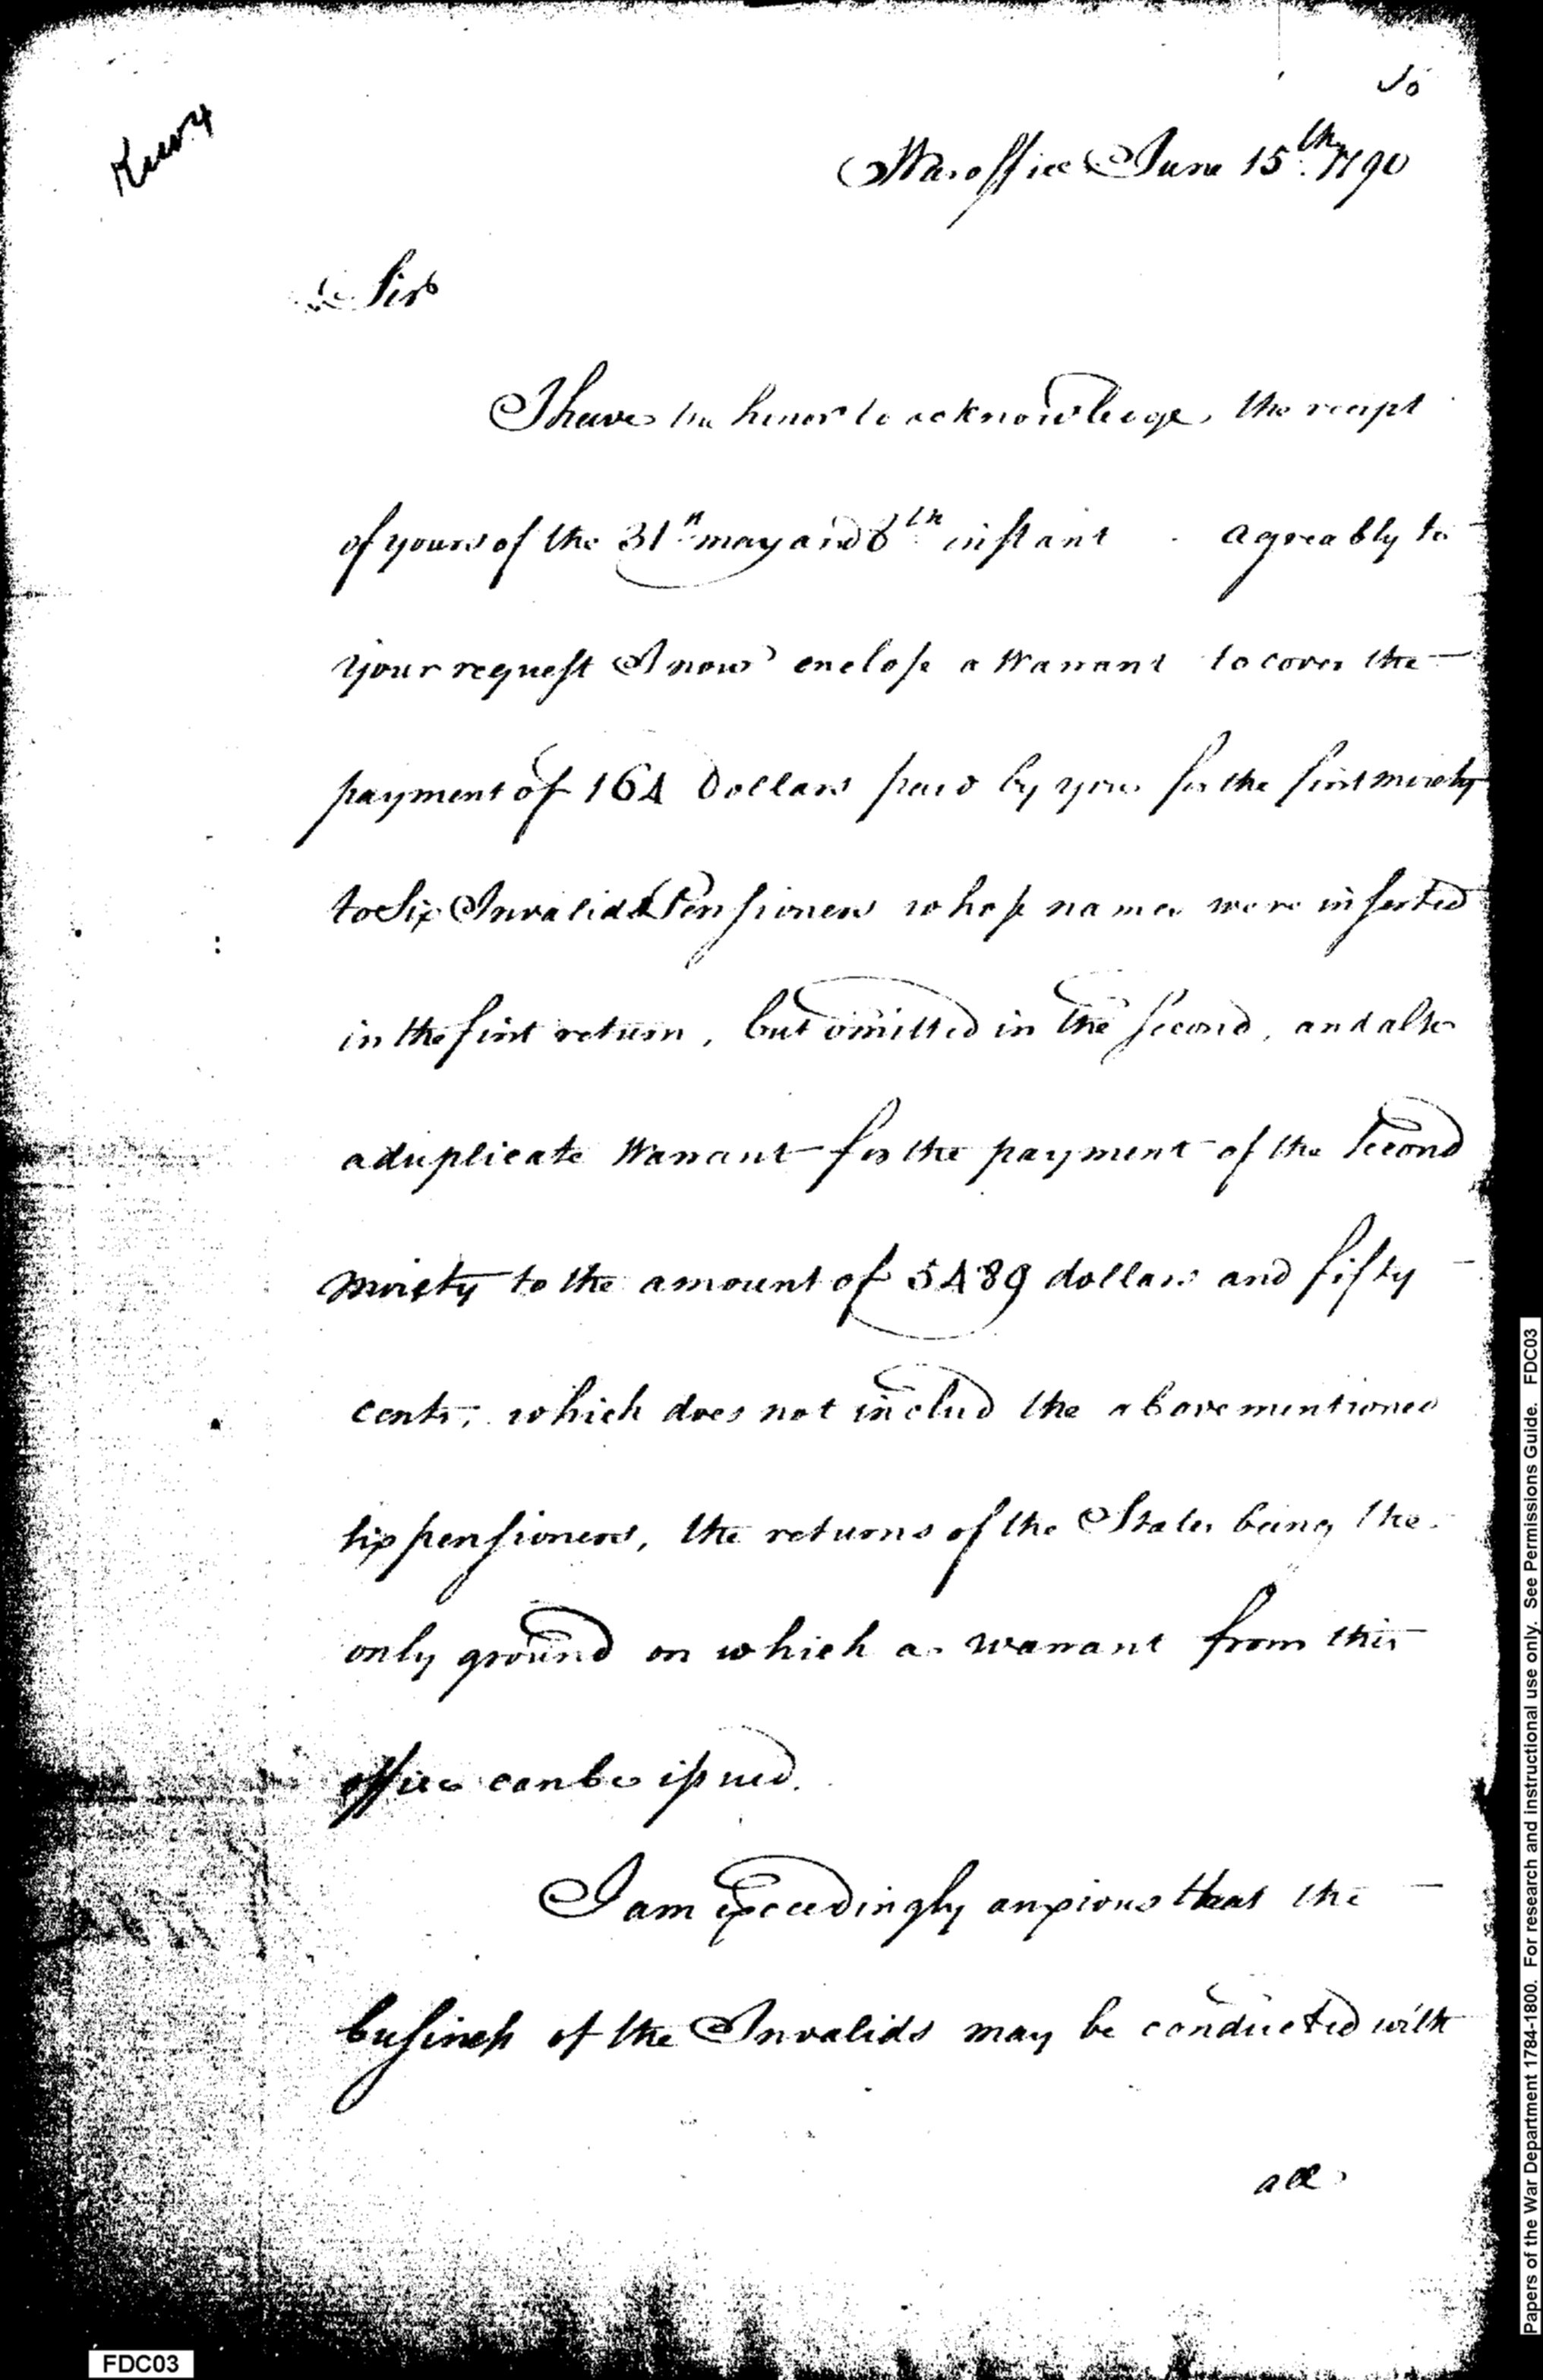 War office June 15th. 1790
Sir
I have the honor to acknowledge the recipt
of yours of the 31st. may and 8th. instant. agreably to
your request I now enclose a Warrant to cover the
payment of 164 Dollars paid by you for the first moiety
to Six Invalid Pensioners whose names were inserted
in the first return, but omitted in the second, and also
a duplicate Warrant for the payment of the Second
moiety to the amount of 5489 dollars and fifty
cents, which does not includ the abovementioned
six pensioners, the returns of the States being the
only ground on which a warrant from this
office can be issued.
I am exceedingly anxious that the
business of the Invalids may be conducted with
all
FDC03
Papers of the War Department 1784-1800. For research and instructional use only. See Permissions Guide. FDC03